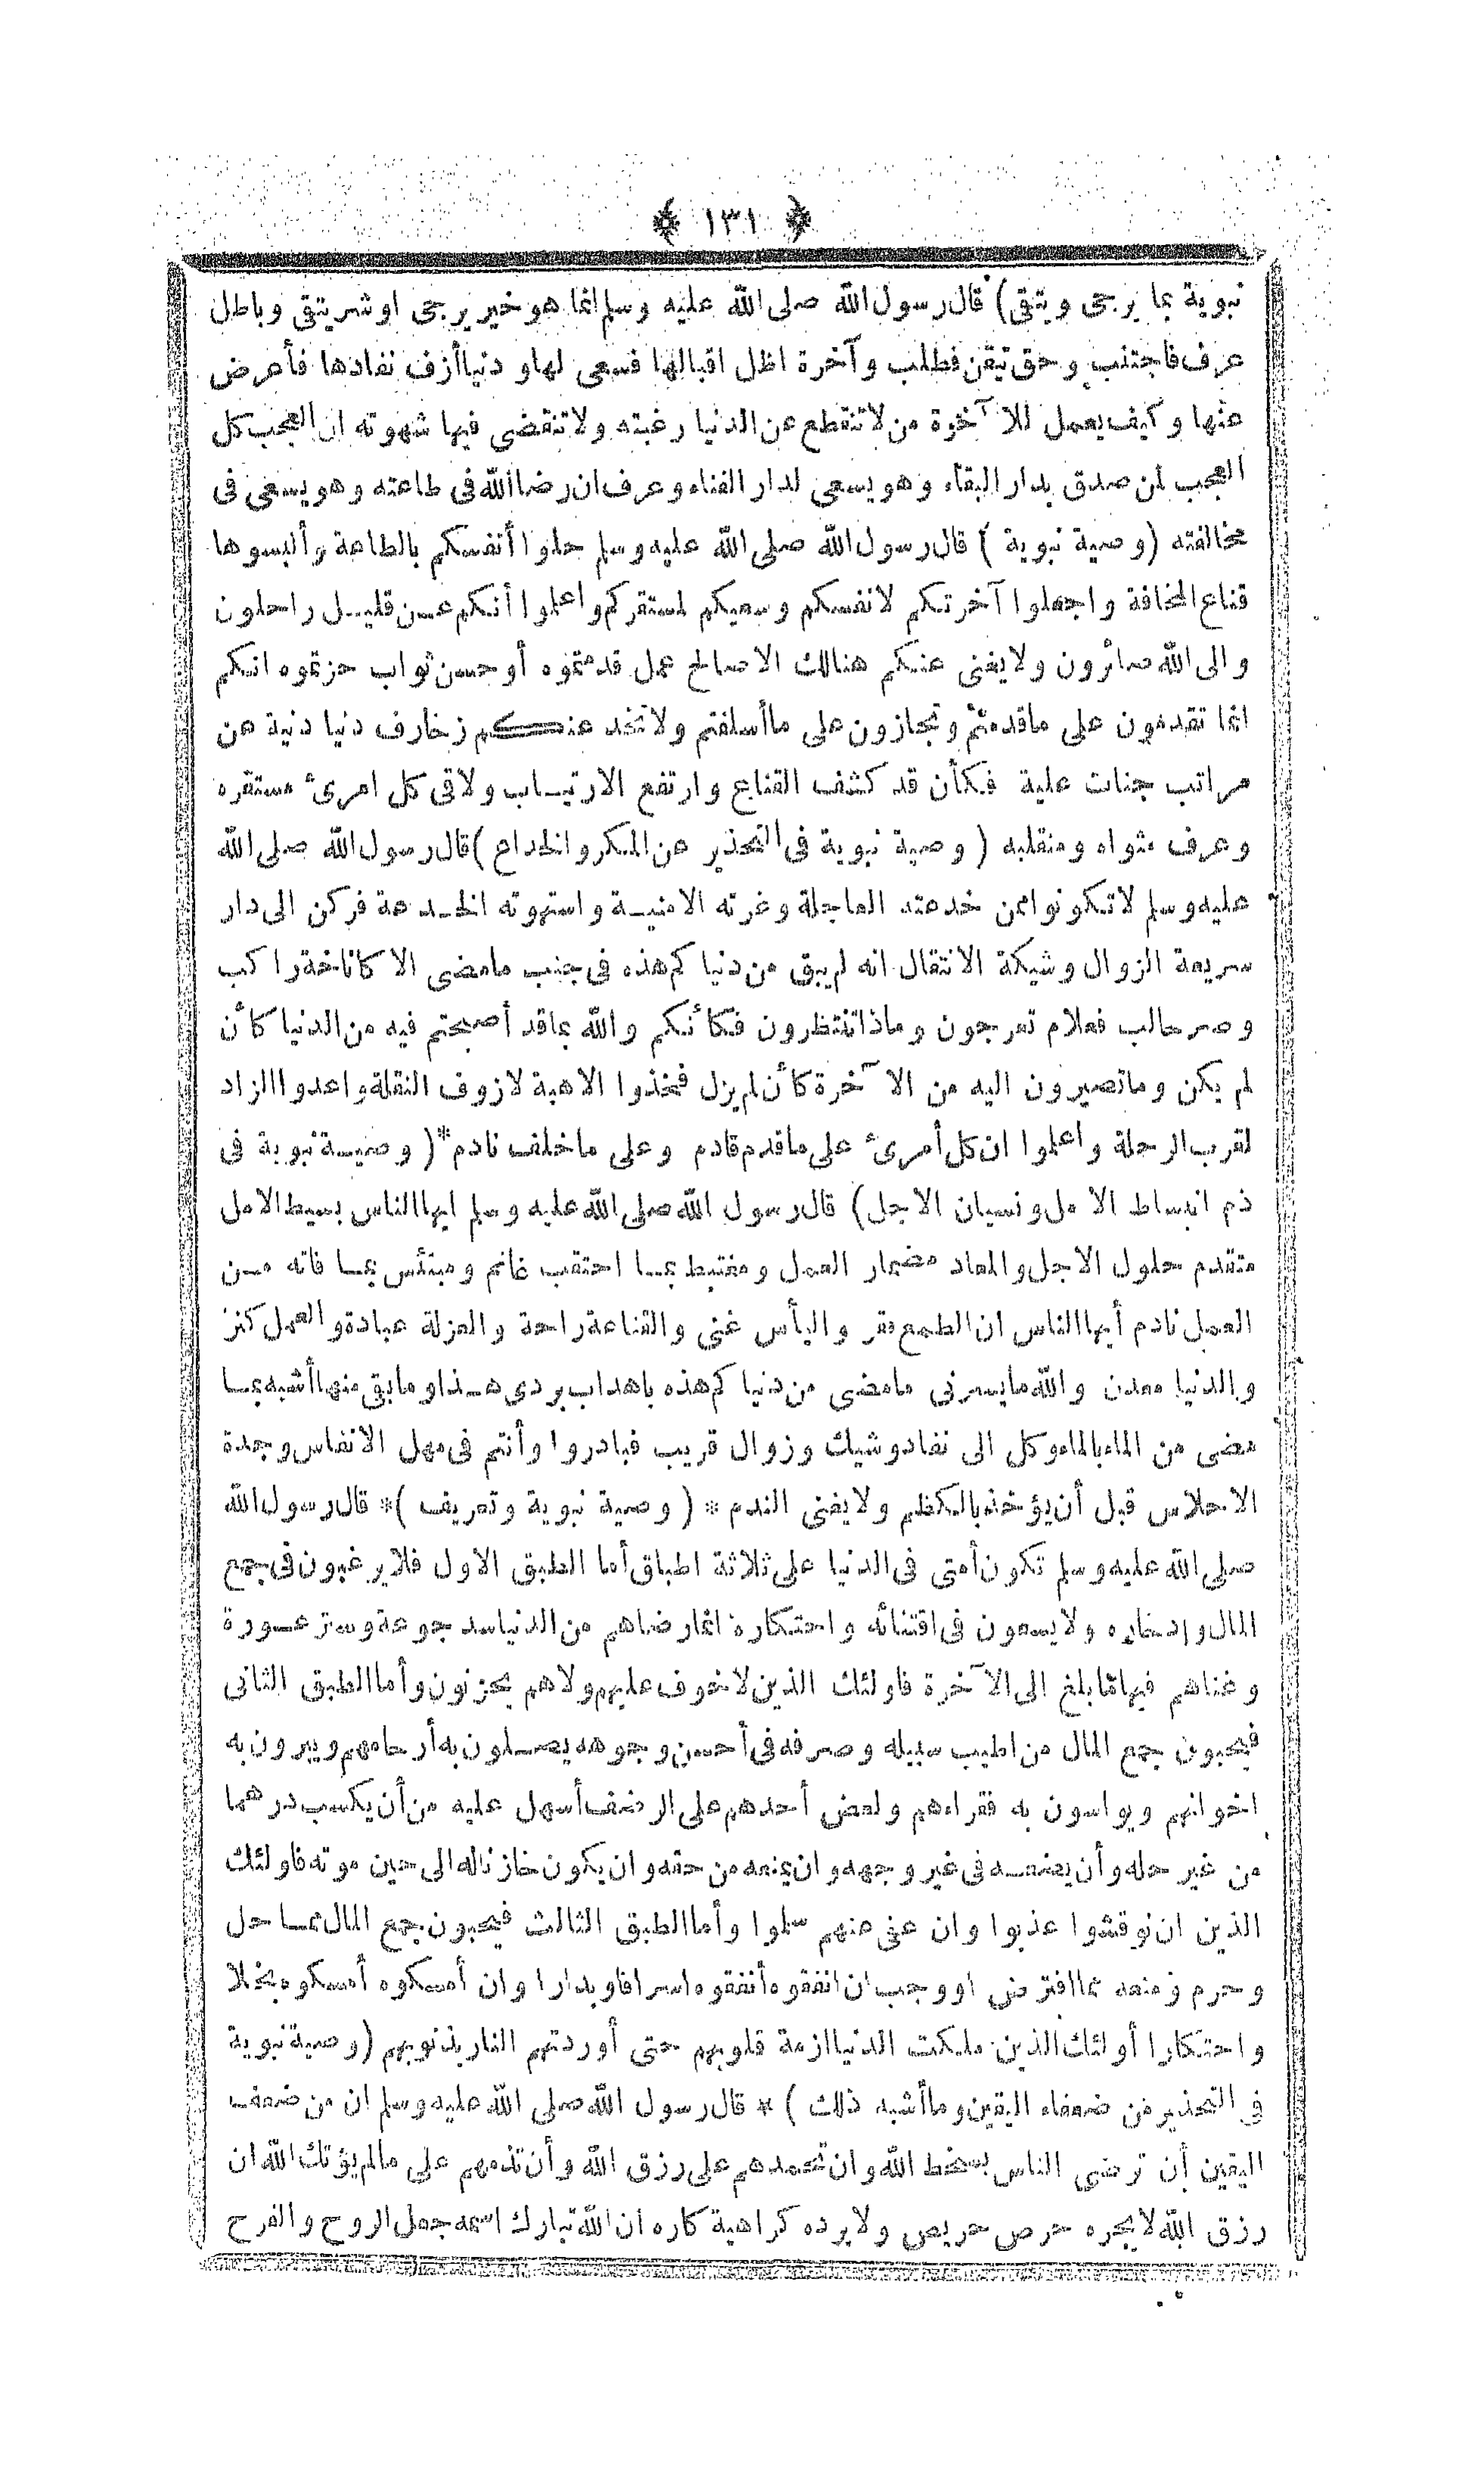 ﴿ ١٣١ ﴾
نبوية بما يرجى ويتقى) قال رسول الله صلى الله عليه وسلم انما هو خير يرجى او شر يتقى وباطل
عرف فاجتنب وحق تيقن فطلب وآخرة اظل اقبالها فسعى لها ودنيا أزف نفادها فأعرض
عنها وكيف يعمل للآخرة من لا تنقطع عن الدنيا رغبته ولا تنقضى فيها شهوته ان العجب كل
العجب لمن صدق بدار البقاء وهو يسعى لدار الفناء وعرف ان رضا الله فى طاعته وهو يسعى فى
مخالفته (وصية نبوية) قال رسول الله صلى الله عليه وسلم حلوا أنفسكم بالطاعة وألبسوها
قناع المخافة واجعلوا آخرتكم لانفسكم وسعيكم لمستقركم واعلموا أنكم عن قليل راحلون
والى الله صائرون ولا يغنى عنكم هنالك الا صالح عمل قدمتموه أو حسن ثواب حزتموه انكم
انما تقدمون على ما قدمتم وتجازون على ما أسلفتم ولا تخدعنكم زخارف دنيا دنية عن
مراتب جنات علية فكأن قد كشف القناع وارتفع الارتياب ولاقى كل امرئ مستقره
وعرف مثواه ومنقلبه (وصية نبوية فى التحذير عن المكر والخداع) قال رسول الله صلى الله
عليه وسلم لا تكونوا ممن خدعته العاجلة وغرته الامنية واستهوته الخدعة فركن الى دار
سريعة الزوال وشيكة الانتقال انه لم يبق من دنياكم هذه فى جنب ما مضى الا كاناخة راكب
وصر حالب فعلام تعرجون وماذا تنتظرون فكأنكم والله بما قد أصبحتم فيه من الدنيا كأن
لم يكن وما تصيرون اليه من الآخرة كأن لم يزل فخذوا الاهبة لازوف النقلة واعدوا الزاد
لقرب الرحلة واعلموا ان كل أمرئ على ما قدم قادم وعلى ما خلف نادم * (وصية نبوية فى
ذم انبساط الامل ونسيان الاجل) قال رسول الله صلى الله عليه وسلم ايها الناس بسيط الامل
متقدم حلول الاجل والمعاد مضمار العمل ومغتبط بما احتقب غانم ومبتئس بما فاته من
العمل نادم أيها الناس ان الطمع فقر واليأس غنى والقناعة راحة والعزلة عبادة والعمل كنز
والدنيا معدن والله ما يسرنى ما مضى من دنياكم هذه باهداب بردى هذا وما بقى منها أشبه بما
مضى من الماء بالماء وكل الى نفاد وشيك وزوال قريب فبادروا وأنتم فى مهل الانفاس وجدة
الاحلاس قبل أن يؤخذ بالكظم ولا يغنى الندم * (وصية نبوية وتعريف) * قال رسول الله
صلى الله عليه وسلم تكون أمتى فى الدنيا على ثلاثة اطباق أما الطبق الاول فلا يرغبون فى جمع
المال وادخاره ولا يسعون فى اقتنائه واحتكاره انما رضاهم من الدنيا سد جوعة وستر عورة
وغناهم فيها ما بلغ الى الآخرة فاولئك الذين لا خوف عليهم ولا هم يحزنون وأما الطبق الثانى
فيحبون جمع المال من اطيب سبيله وصرفه فى أحسن وجوهه يصلون به أرحامهم ويبرون به
اخوانهم ويواسون به فقراءهم ولعض أحدهم على الرضف أسهل عليه من أن يكسب درهما
من غير حله وأن يضعه فى غير وجهه وان يمنعه من حقه وان يكون خازنا له الى حين موته فاولئك
الذين ان نوقشوا عذبوا وان عفى عنهم سلموا وأما الطبق الثالث فيحبون جمع المال مما حل
وحرم ومنعه مما افترض او وجب ان انفقوه أنفقوه اسرافا وبدارا وان أمسكوه أمسكوه بخلا
واحتكارا أولئك الذين ملكت الدنيا ازمة قلوبهم حتى أوردتهم النار بذنوبهم (وصية نبوية
فى التحذير من ضعفاء اليقين وما أشبه ذلك) * قال رسول الله صلى الله عليه وسلم ان من ضعف
اليقين أن ترضى الناس بسخط الله وان تحمدهم على رزق الله وأن تذمهم على ما لم يؤتك الله ان
رزق الله لا يجره حرص حريص ولا يرده كراهية كاره ان الله تبارك اسمه جعل الروح والفرح